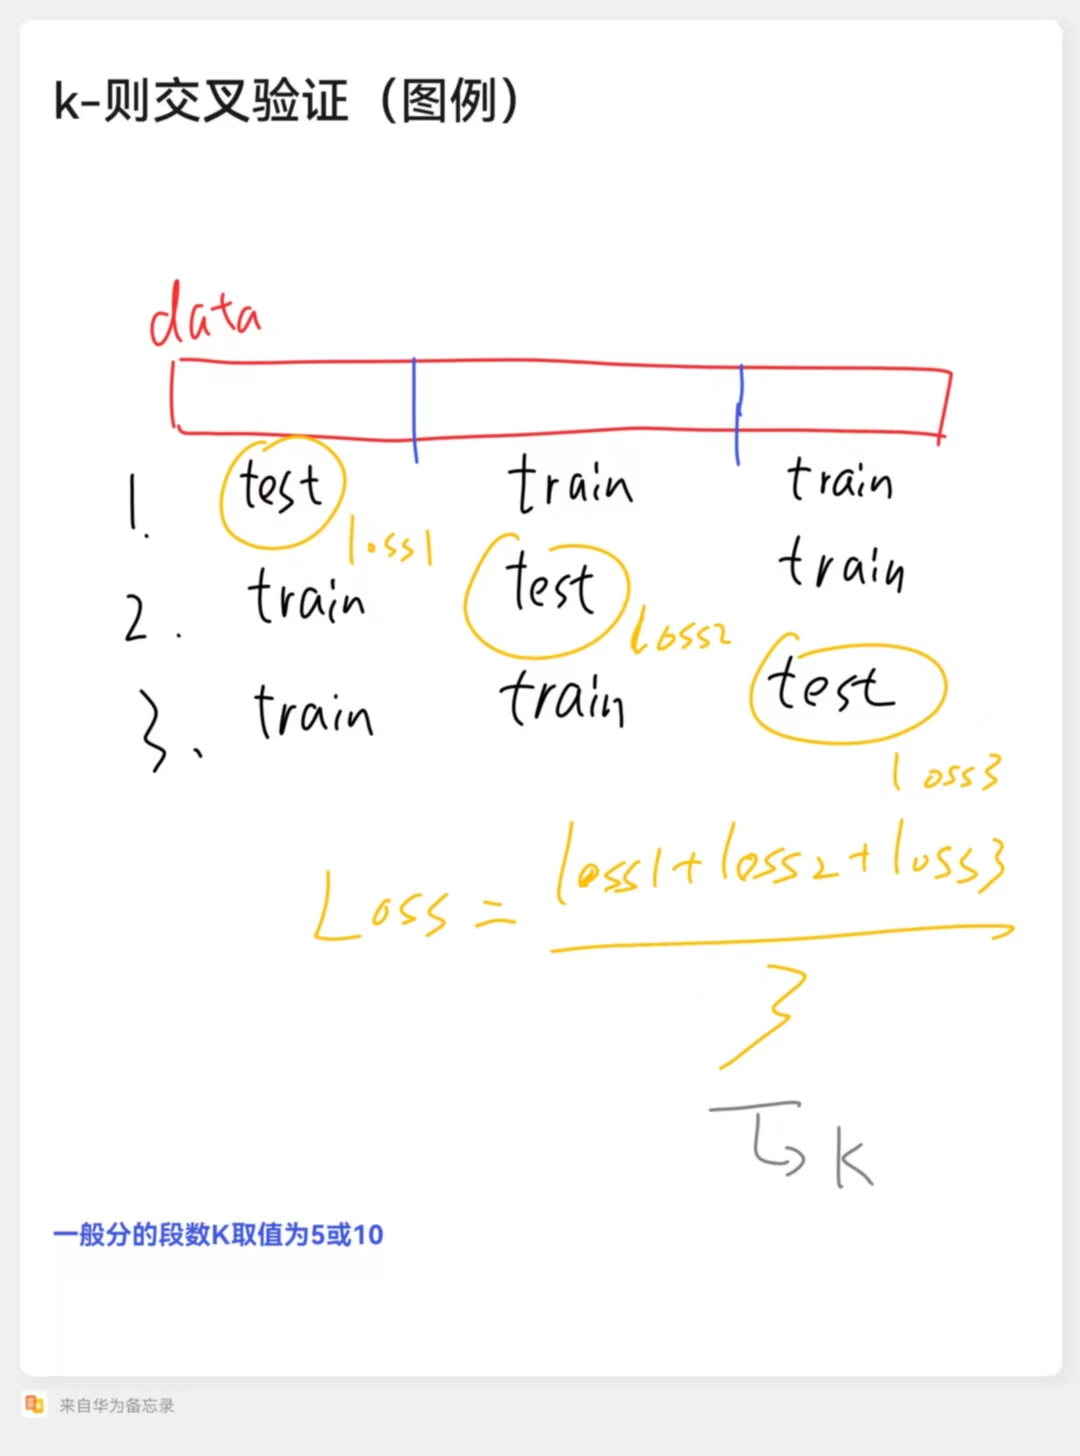 k-则交叉验证（图例）
data
1. test train train
loss1
2. train test train
loss2
3、 train train test
loss3
Loss = loss1+loss2+loss3
3
K
一般分的段数K取值为5或10
来自华为备忘录